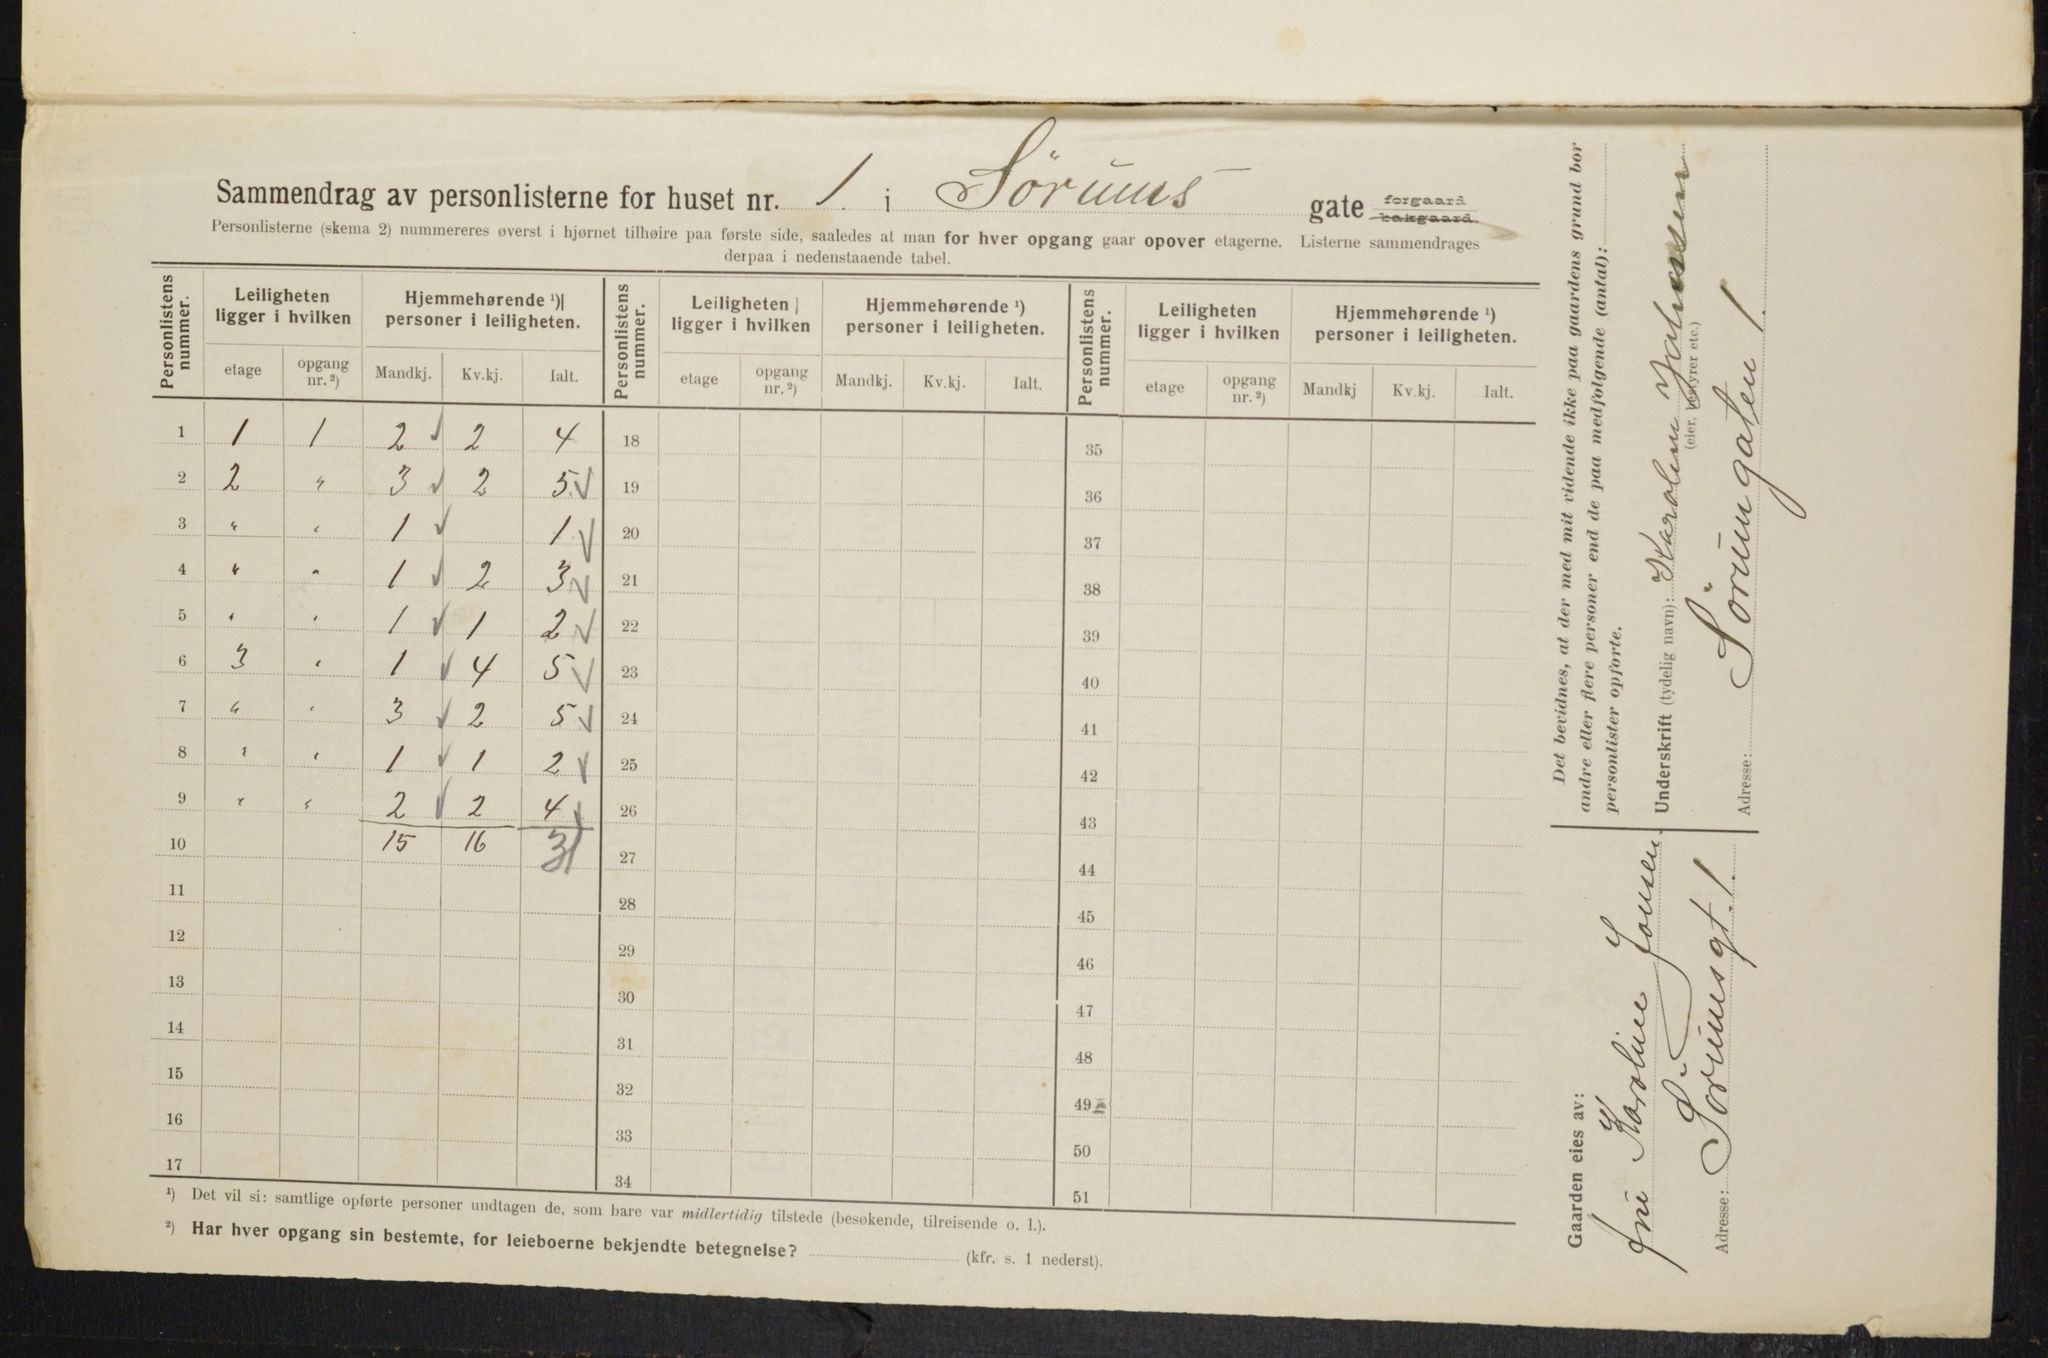 Sammendrag av personlisterne for huset nr. 1. i Sørums gate forgaard bakgaard.
Personlisterne (skema 2) nummereres øverst i hjørnet tilhøire paa første side, saaledes at man for hver opgang gaar opover etagerne. Listerne sammendrages
derpaa i nedenstaaende tabel.
Personlistens nummer. Leiligheten ligger i hvilken Hjemmehørende ¹) personer i leiligheten. Personlistens nummer. Leiligheten ligger i hvilken Hjemmehørende ¹) personer i leiligheten. Personlistens nummer. Leiligheten ligger i hvilken Hjemmehørende ¹) personer i leiligheten.
etage opgang nr. ²) Mandkj. Kv.kj. Ialt. etage opgang nr. ²) Mandkj. Kv.kj. Ialt. etage opgang nr. ²) Mandkj Kv.kj. Ialt.
1 1 1 2 √ 2 4 18 35
2 2 " 3 √ 2 5 √ 19 36
3 " " 1 √ 1 √ 20 37
4 " " 1 √ 2 3 √ 21 38
5 " " 1 √ 1 2 √ 22 39
6 3 " 1 √ 4 5 √ 23 40
7 " " 3 √ 2 5 √ 24 41
8 " " 1 √ 1 2 √ 25 42
9 " " 2 √ 2 4 √ 26 43
10 15 16 31 27 44
11 28 45
12 29 46
13 30 47
14 31 48
15 32 49
16 33 50
17 34 51
¹) Det vil si: samtlige opførte personer undtagen de, som bare var midlertidig tilstede (besøkende, tilreisende o. l.).
²) Har hver opgang sin bestemte, for leieboerne bekjendte betegnelse? (kfr. s. 1 nederst).
Det bevidnes, at der med mit vidende ikke paa gaardens grund bor
andre eller flere personer end de paa medfølgende (antal):
personlister opførte.
Underskrift (tydelig navn): Karoline
(eier, bestyrer etc.)
Adresse: Sörumgaten 1.
Gaarden eies av:
fru Karoline Jonsen
Adresse: Sörumsgt. 1.